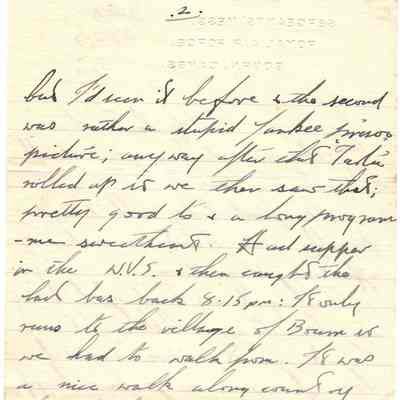 .2.
SERGEANTS' MESS
ROYAL AIR FORCE
BOURN, CAMBS
but I'd seen it before & the second
was rather a stupid Yankee prison
picture; anyway after that
rolled up so we then saw that;
pretty good to & a long program
-me sweetheart. Had supper
in the W.V.S. & then caught the
last bus back 8.15pm: It only
runs to the village of Bourn so
we had to walk from. It was
a nice walk along country